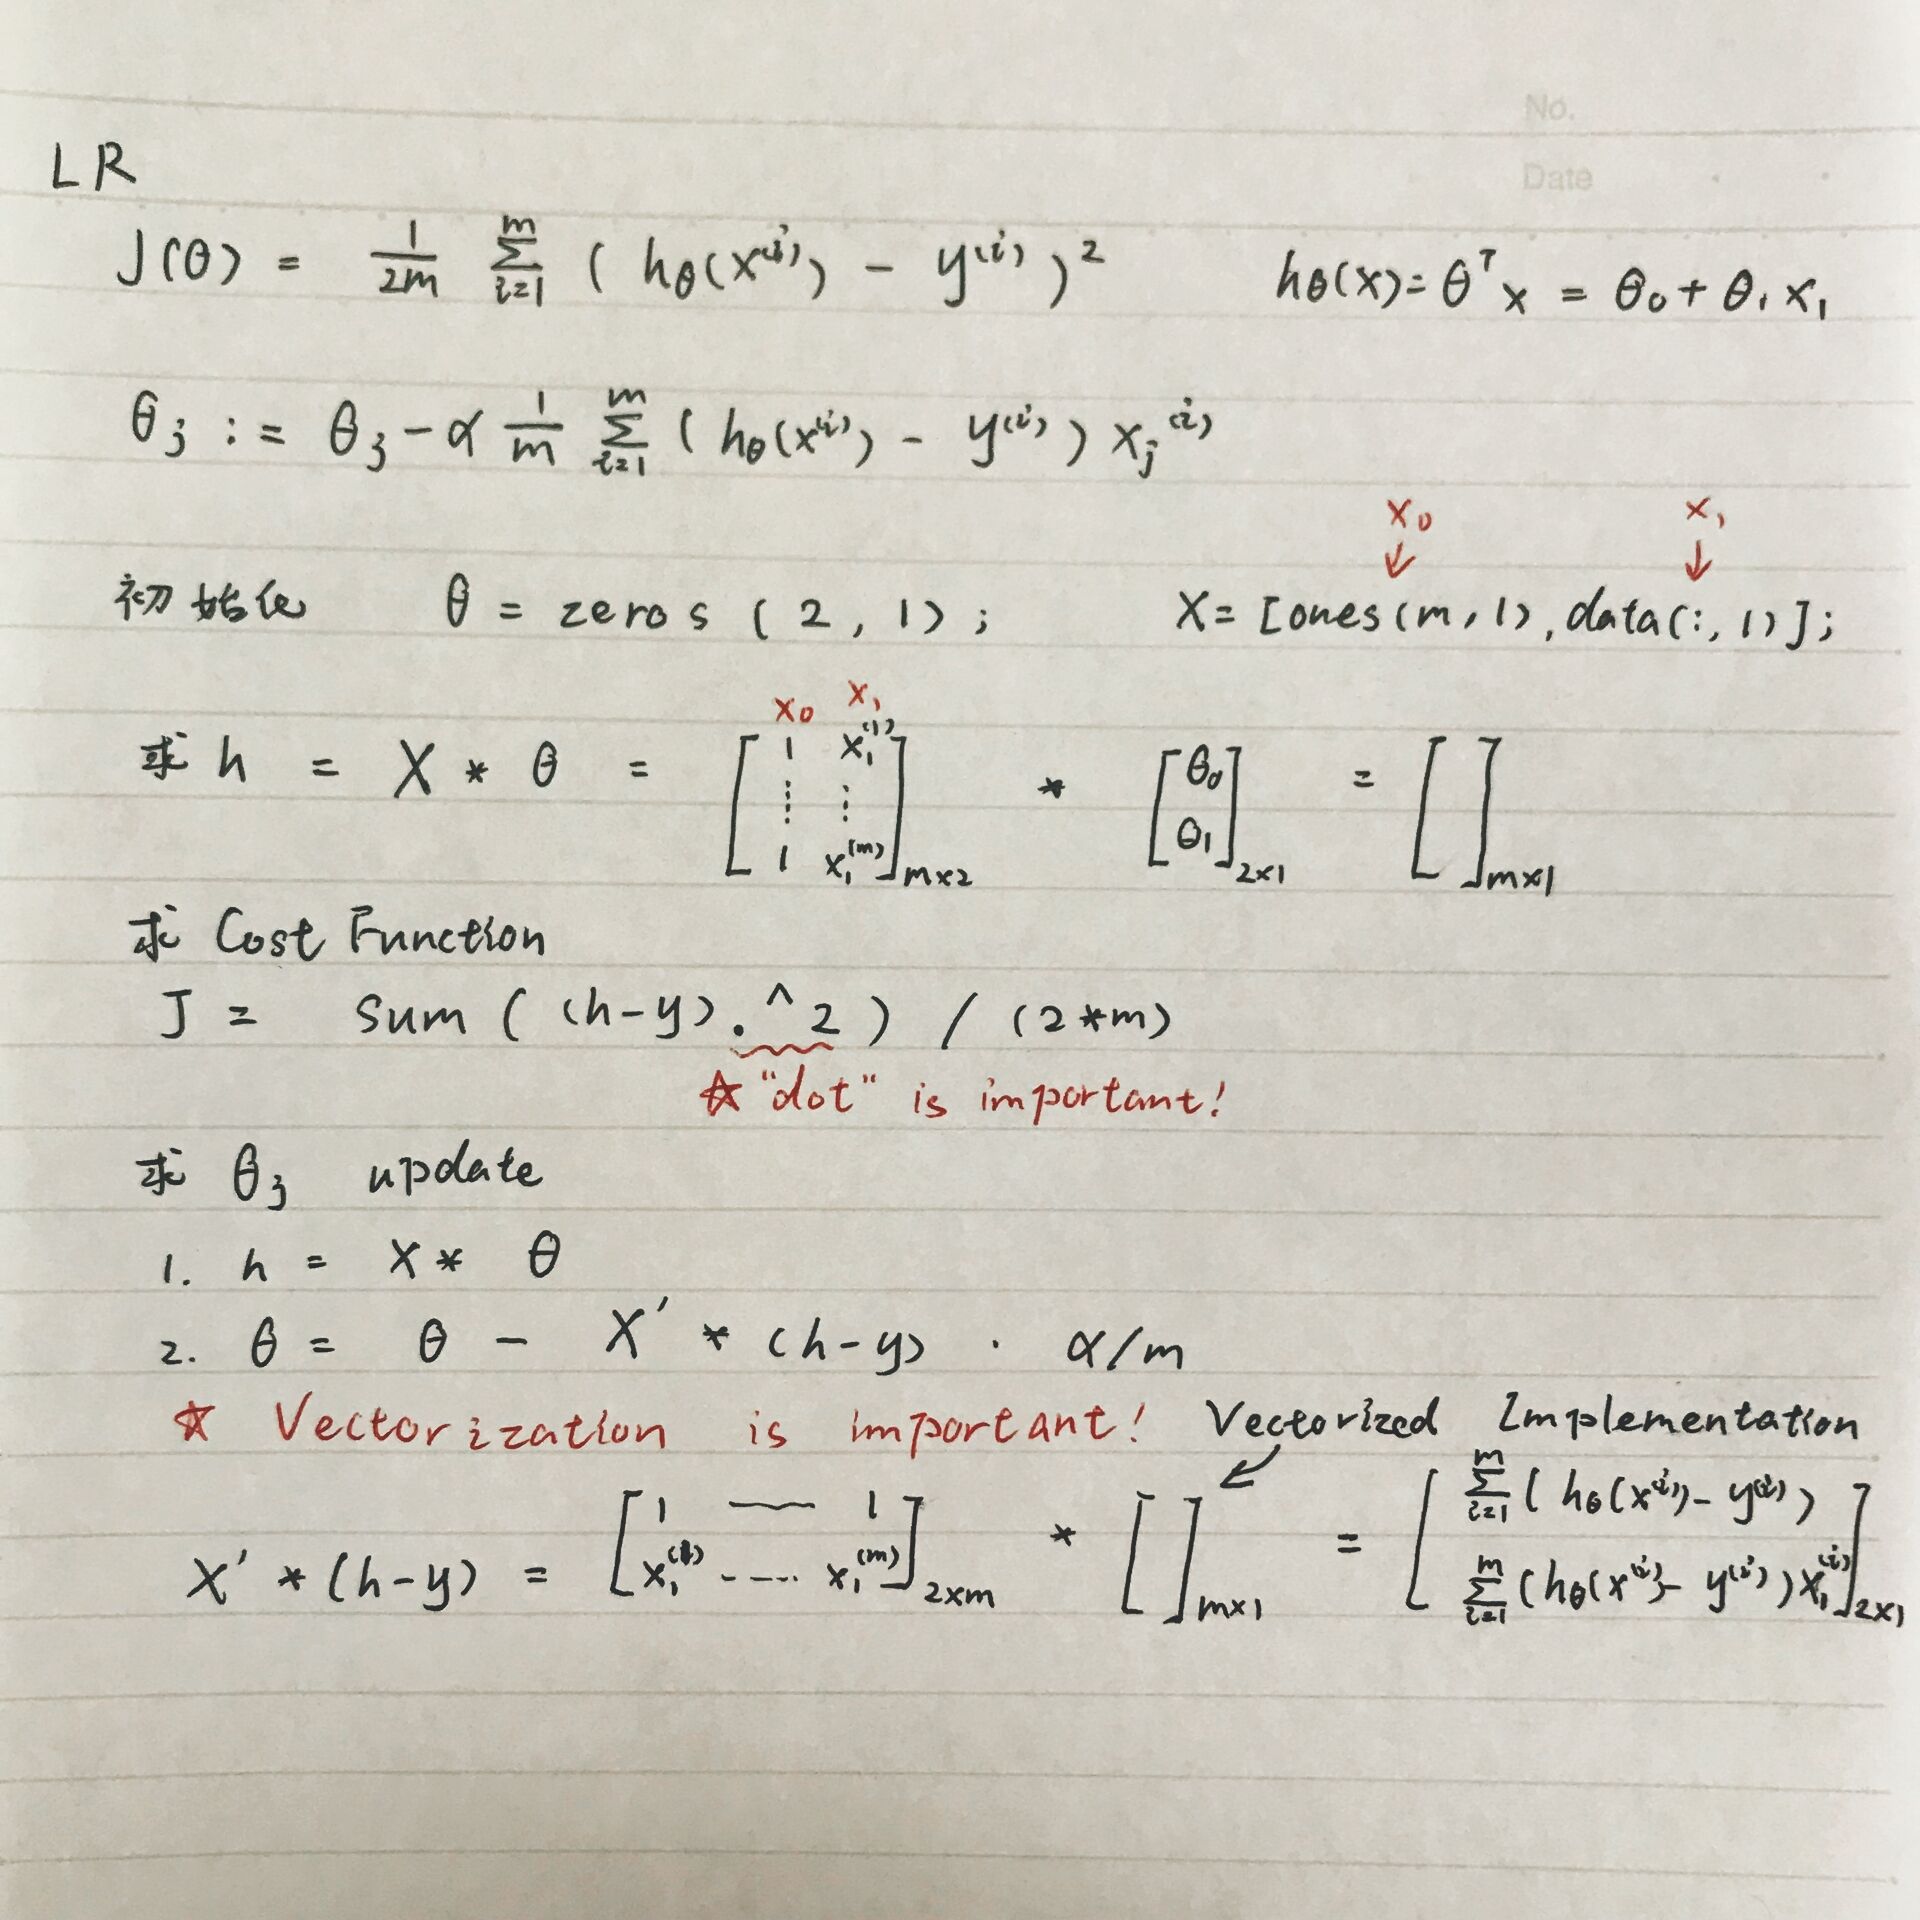 No.
Date
LR
J(θ) = 1/2m Σ_{i=1}^{m} ( hθ(x⁽ⁱ⁾) - y⁽ⁱ⁾ )²    hθ(x) = θᵀx = θ₀ + θ₁x₁
θj := θj - α 1/m Σ_{i=1}^{m} ( hθ(x⁽ⁱ⁾) - y⁽ⁱ⁾ ) xj⁽ⁱ⁾
x₀ ↓    x₁ ↓
初始化    θ = zeros ( 2, 1 );    X = [ones(m,1), data(:,1)];
x₀ x₁
求 h = X * θ = [ 1 x₁⁽¹⁾ ; ⋮ ⋮ ; 1 x₁⁽ᵐ⁾ ]m×2 * [ θ₀ ; θ₁ ]2×1 = [ ]m×1
求 Cost Function
J = sum ( (h-y).^2 ) / (2*m)
☆ "dot" is important!
求 θj update
1. h = X * θ
2. θ = θ - X' * (h-y) · α/m
☆ Vectorization is important! Vectorized Implementation
X' * (h-y) = [ 1 — 1 ; x₁⁽¹⁾ ---- x₁⁽ᵐ⁾ ]2×m * [ ]m×1 = [ Σ_{i=1}^{m} ( hθ(x⁽ⁱ⁾) - y⁽ⁱ⁾ ) ; Σ_{i=1}^{m} ( hθ(x⁽ⁱ⁾) - y⁽ⁱ⁾ ) x₁⁽ⁱ⁾ ]2×1